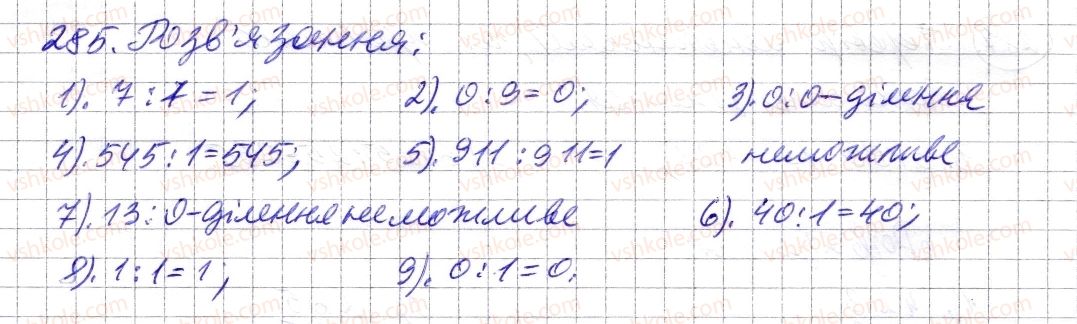 285. Розв'язання:
1). 7 : 7 = 1; 2). 0 : 9 = 0; 3). 0 : 0 – ділення
4). 545 : 1 = 545; 5). 911 : 911 = 1 неможливе
7). 13 : 0 – ділення неможливе 6). 40 : 1 = 40;
8). 1 : 1 = 1; 9). 0 : 1 = 0.